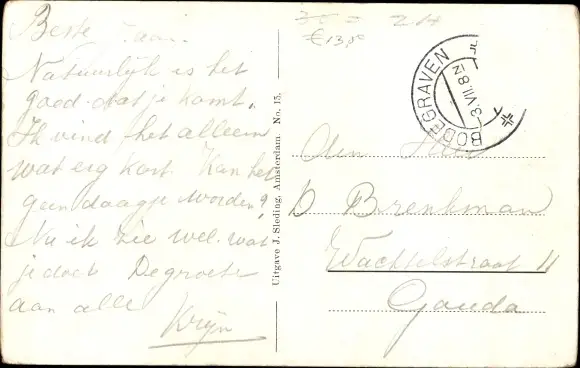 Beste
Natuurlijk is het
goed dat je komt.
Ik vind het alleen
wat erg kort. Kan het
geen daagje worden?
Nu ik zie wel wat
je doet De groeten
aan alle
Krijn
Uitgave J. Sleding, Amsterdam. No. 15.
€13,50
BODEGRAVEN
3.VII.8N
den Heer
D Brenkman
Wachtelstraat 11
Gouda